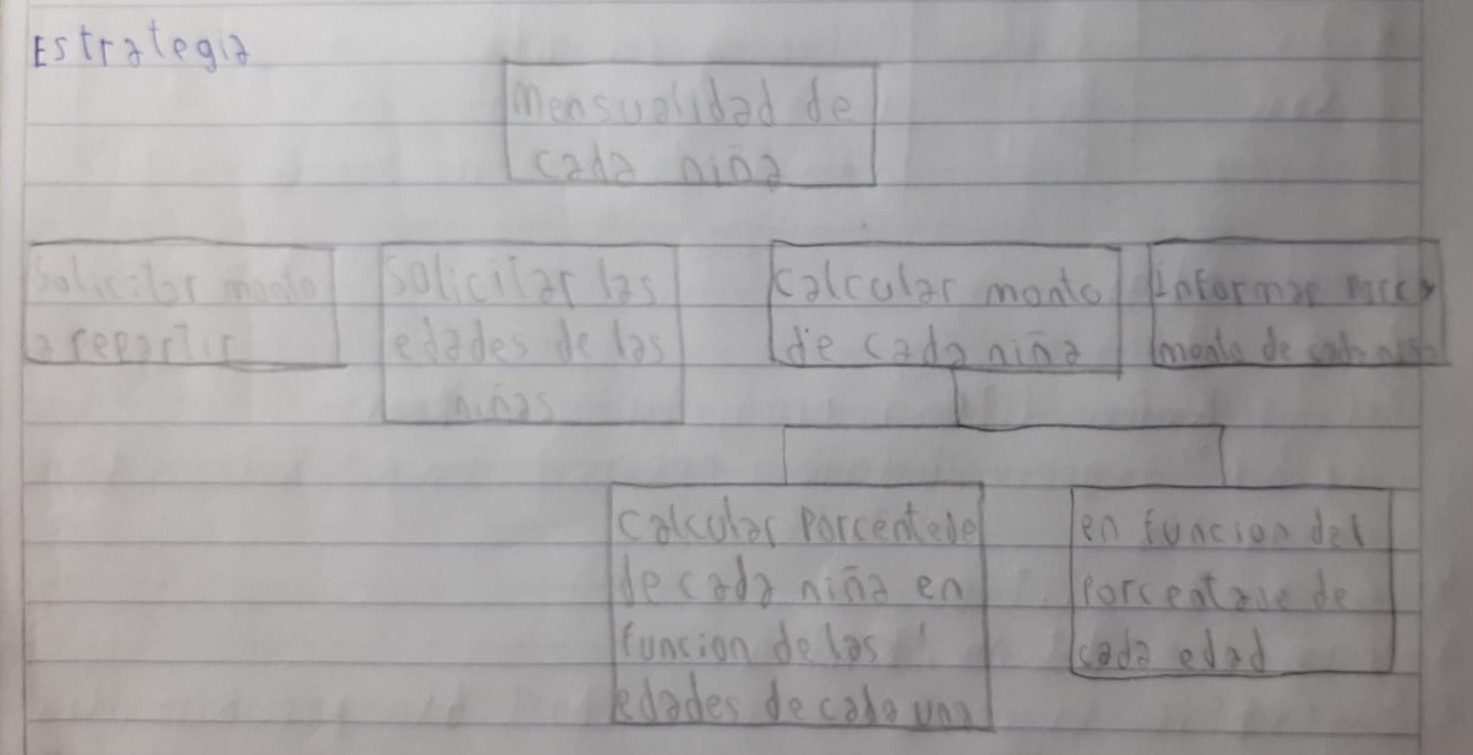 Estrategia
Mensualidad de
cada niña
Solicitar monto
a repartir
Solicitar las
edades de las
niñas
Calcular monto
de cada niña
Informar
monto de cada
Calcular Porcentede
de cada niña en
funcion de las
edades de cada una
en funcion del
Porcentaje de
cada edad